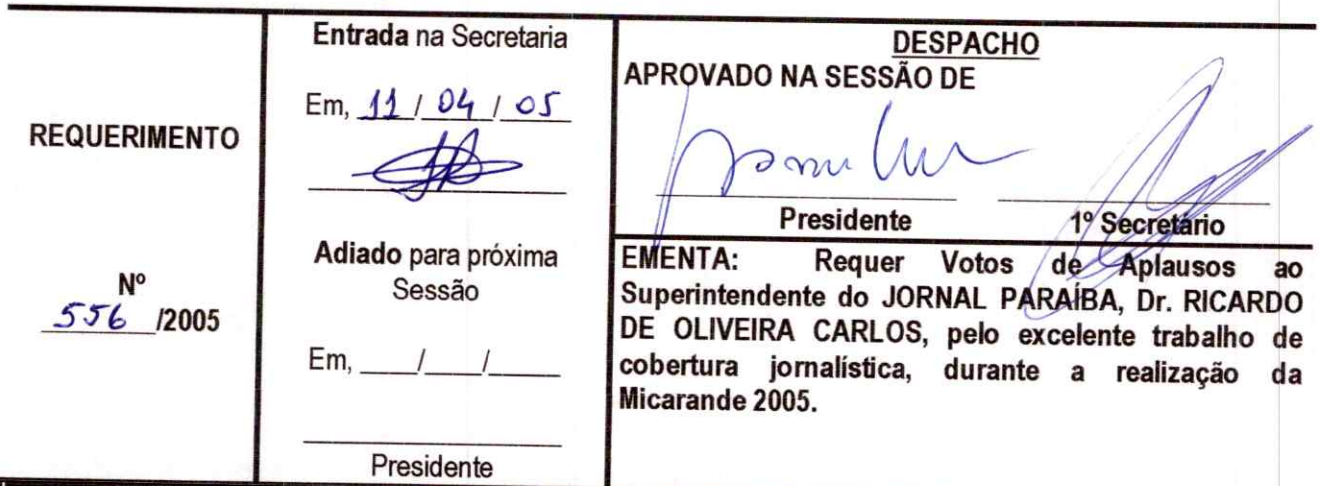 REQUERIMENTO
Nº
556 /2005
Entrada na Secretaria
Em, 11 / 04 / 05
Adiado para próxima
Sessão
Em, ____/____/_____
Presidente
DESPACHO
APROVADO NA SESSÃO DE
Presidente 1º Secretário
EMENTA: Requer Votos de Aplausos ao
Superintendente do JORNAL PARAÍBA, Dr. RICARDO
DE OLIVEIRA CARLOS, pelo excelente trabalho de
cobertura jornalística, durante a realização da
Micarande 2005.